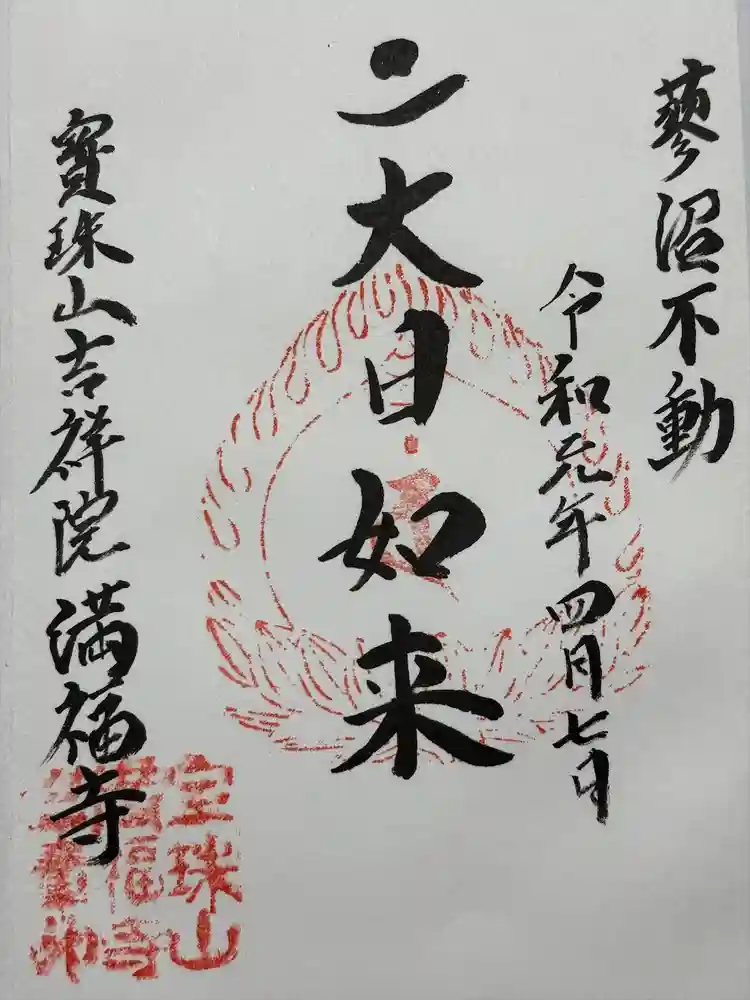 蓼沼不動
令和元年四月七日
大日如来
寳珠山吉祥院満福寺
宝珠山